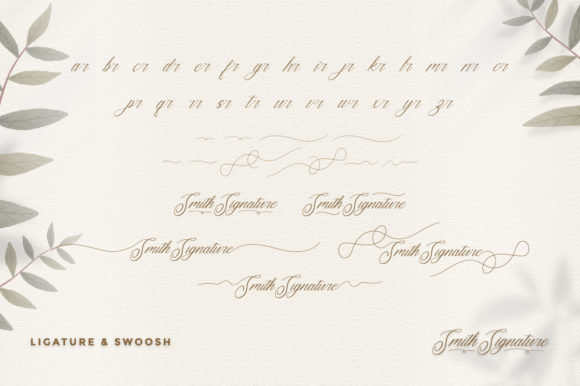 ar br cr dr er fr gr hr ir jr kr lr mr nr or
pr qr rr sr tr ur vr wr xr yr zr
Smith Signature Smith Signature
Smith Signature Smith Signature
Smith Signature
LIGATURE & SWOOSH
Smith Signature